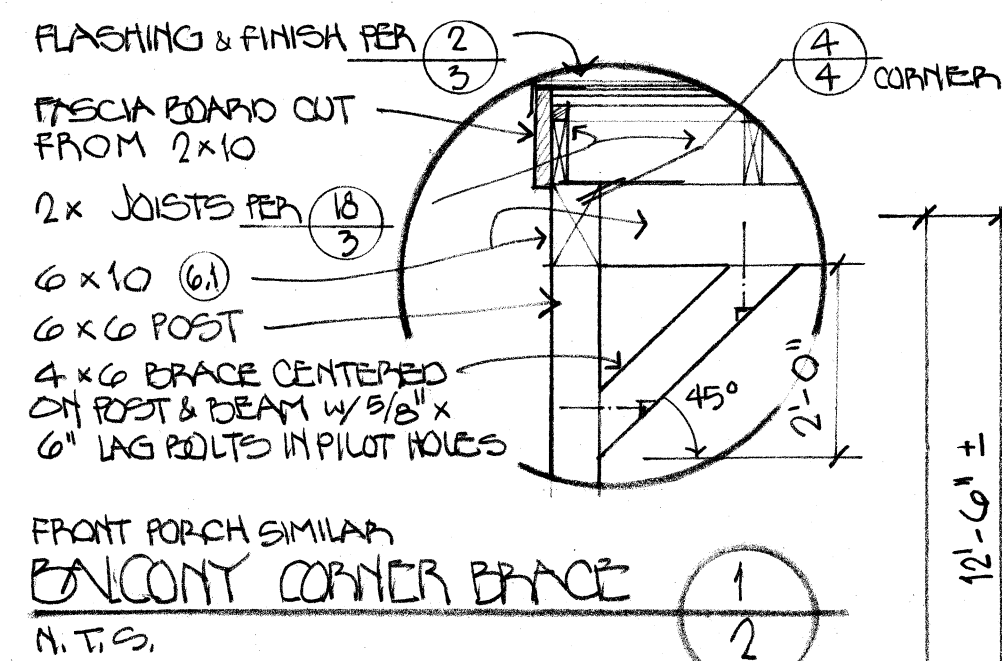 FLASHING & FINISH PER 2/3
4/4 CORNER
FASCIA BOARD CUT
FROM 2x10
2x JOISTS PER 18/3
6x10 6.1
6x6 POST
4x6 BRACE CENTERED
ON POST & BEAM W/ 5/8" x
6" LAG BOLTS IN PILOT HOLES
45°
2'-0"
12'-6" ±
FRONT PORCH SIMILAR
BALCONY CORNER BRACE
1/2
N.T.S.